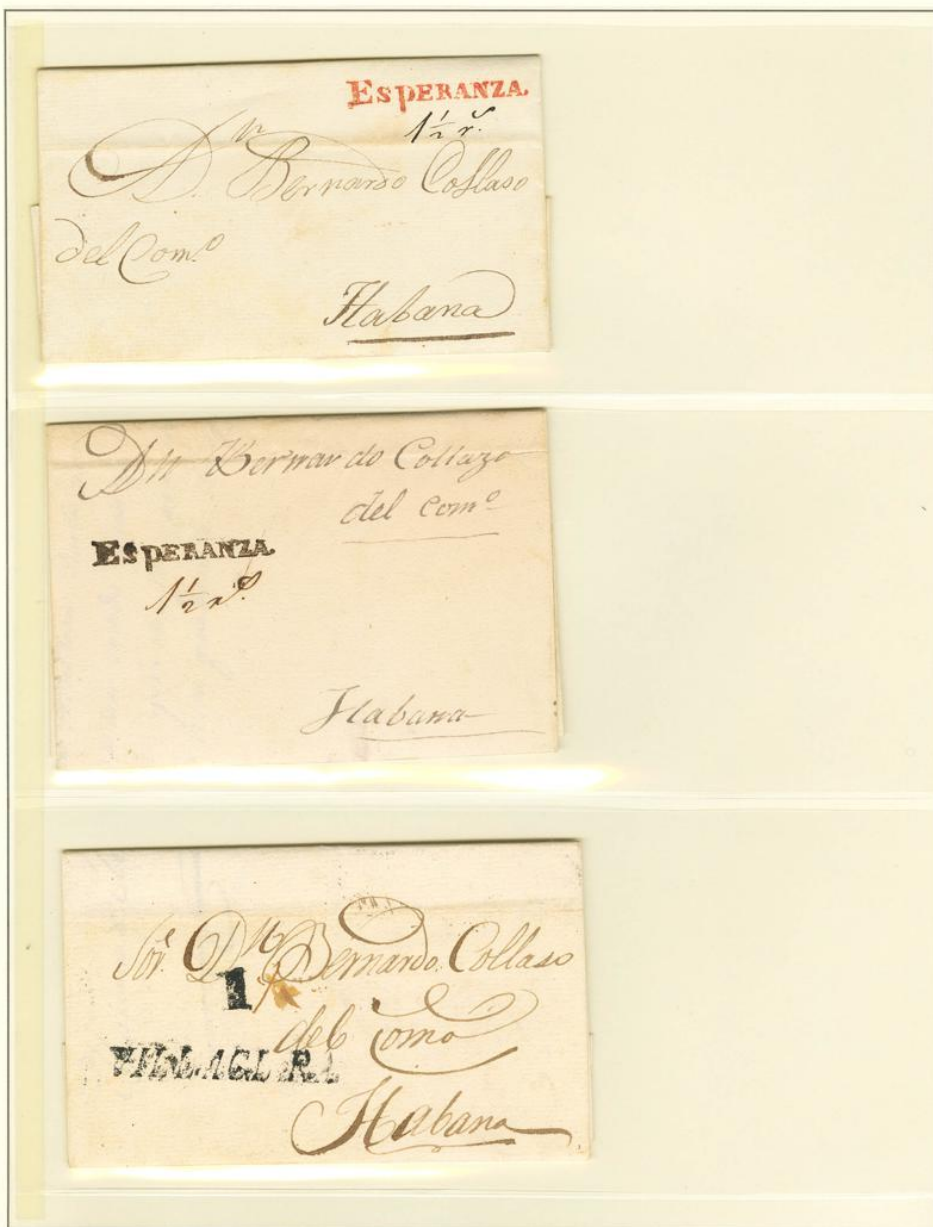 ESPERANZA.
1½ rˢ.
Dⁿ. Bernardo Collaso
del Comº
Habana
Dn Bernardo Collazo
del comº
ESPERANZA.
1½ rˢ.
Habana
Sòr. Dⁿ Bernardo Collaso
1
del Como
VILLACLARA
Habana